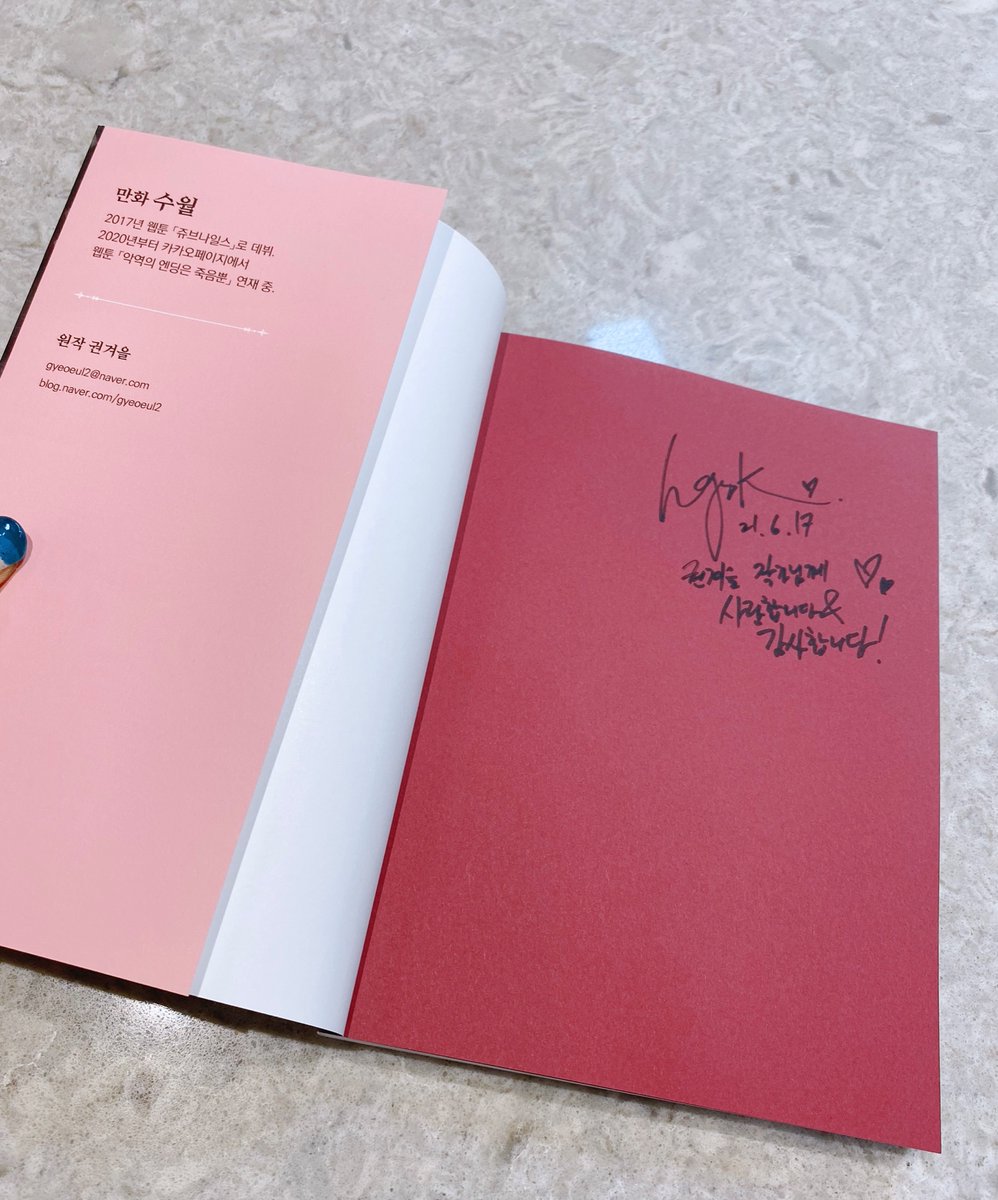 만화 수월
2017년 웹툰 「쥬브나일스」로 데뷔.
2020년부터 카카오페이지에서
웹툰 「악역의 엔딩은 죽음뿐」 연재 중.
원작 권겨을
gyeoeul2@naver.com
blog.naver.com/gyeoeul2
21.6.17
권겨을 작가님께
사랑합니다&
감사합니다!